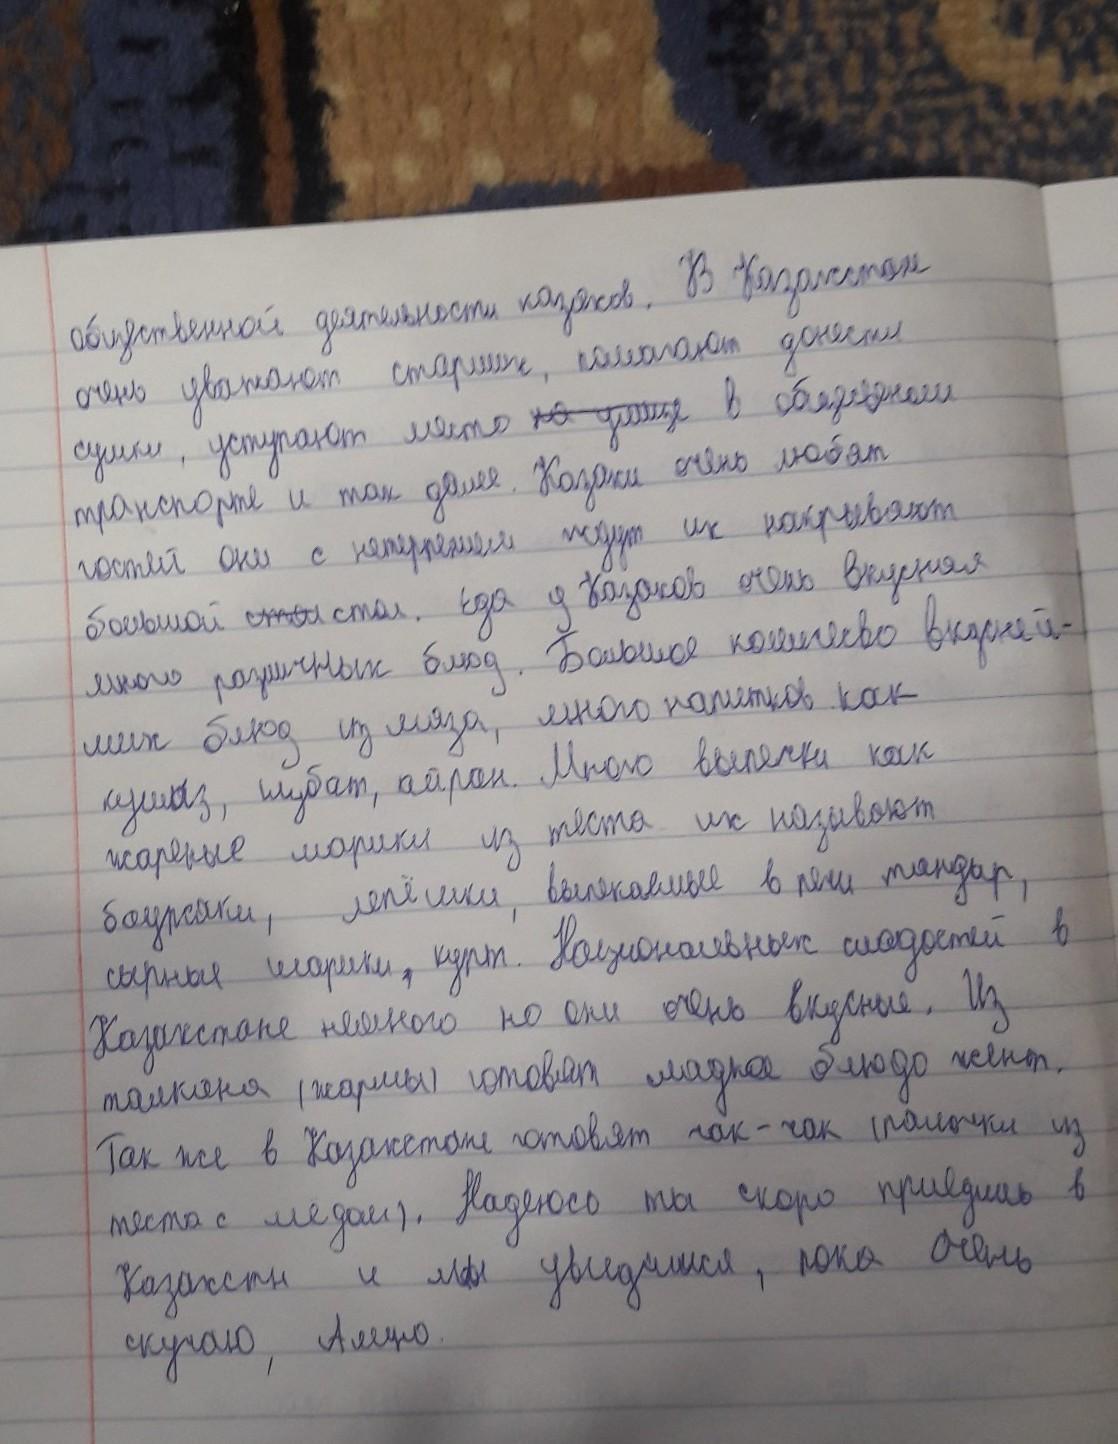 общественной деятельности казахов. В Казахстан
очень уважают старших, помогают донести
сумки, уступают место на улице в общественом
транспорте и так далее. Казахи очень любят
гостей они с нетерпением ждут их накрывают
большой стол. Еда у Казахов очень вкусная
много различных блюд. Большое количесво вкусней-
ших блюд из мяза, много напитков как
кумыз, шубат, айран. Много выпечки как
жареные шарики из теста их называют
баурсаки, лепёшки, выпекаемые в печи тандыр,
сырные шарики, курт. Национальных сладостей в
Казахстане немного но они очень вкусные. Из
талкана (жармы) готовят сладкое блюдо жент.
Так же в Казахстане готовят чак-чак (палочки из
теста с мёдом). Надеюсь ты скоро приедишь в
Казахстн и мы увидимся, пока очень
скучаю,